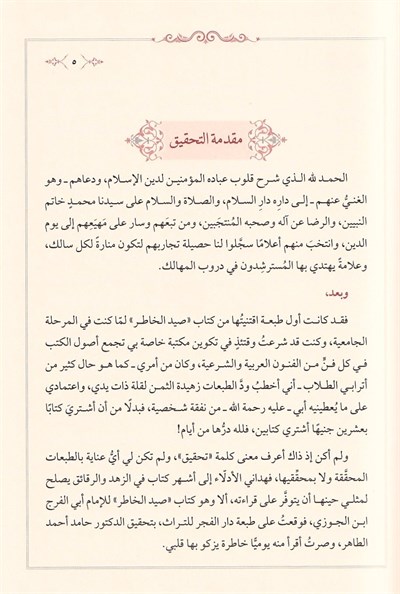 ٥
مقدمة التحقيق
الحمـد لله الـذي شـرح قلوب عباده المؤمنين لدين الإسـلام، ودعاهم ـ وهو
الغنيُّ عنهـم ـ إلـى دارِه دارِ السـلام، والصلاة والسلام على سيدنا محمـدٍ خاتم
النبيين، والرضا عن آله وصحبه المُنتجَبين، ومن تبعَهم وسار على مَهيَعِهم إلى يوم
الدين، وانتخبَ منهم أعلامًا سجَّلوا لنا حصيلة تجاربهم لتكون منارةً لكل سالك،
وعلامةً يهتدي بها المُسترشِدون في دروب المهالك.
وبعد،
فقـد كانـت أول طبعـة اقتنيتُها من كتاب «صيد الخاطـر» لمّا كنت في المرحلة
الجامعية، وكنت قد شرعتُ وقتئذٍ في تكوين مكتبة خاصة بي تجمع أصول الكتب
في كل فنٍّ مـن الفنون العربية والشرعية، وكان من أمري ـ كمـا هـو حال كثير من
أترابي الطـلاب ـ أني أخطبُ ودَّ الطبعات زهيدة الثمـن لقلة ذات يدي، واعتمادي
على ما يُعطينيه أبي ـ عليه رحمة الله ـ من نفقة شخصية، فبدلًا من أن أشتريَ كتابًا
بعشرين جنيهًا أشتري كتابين، فلله درُّها من أيام!
ولم أكن إذ ذاك أعرف معنى كلمة «تحقيق»، ولم تكن لي أيُّ عناية بالطبعات
المحقَّقة ولا بمحقِّقيها، فهداني الأدلّاء إلى أشهر كتاب في الزهد والرقائق يصلح
لمثلـي حينهـا أن يتوفَّر على قراءته، ألا وهو كتاب «صيد الخاطر» للإمام أبي الفرج
ابـن الجـوزي، فوقعتُ على طبعة دار الفجر للتراث، بتحقيق الدكتور حامد أحمد
الطاهر، وصرتُ أقرأ منه يوميًّا خاطرة يزكو بها قلبي.